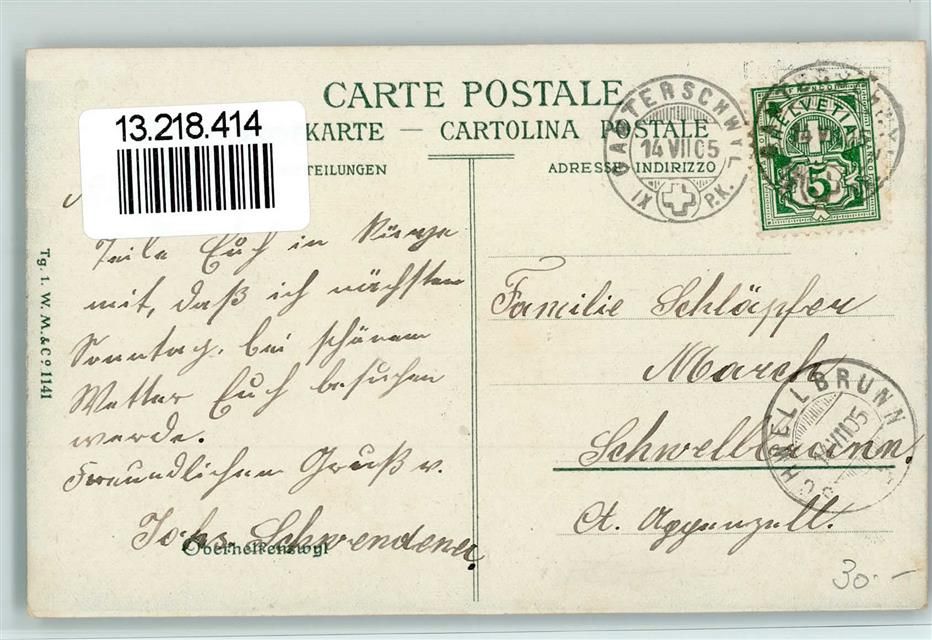 CARTE POSTALE
13.218.414
KARTE — CARTOLINA POSTALE
TEILUNGEN
ADRESSE INDIRIZZO
GANTERSCHWYL
14 VII 05
XI P.K.
HELVETIA
FRANCO
5
Teile Euch in Kürze
mit, daß ich nächsten
Sonntag, bei schönem
Wetter Euch besuchen
werde.
Freundlichen Gruß v.
Johs. Schwendener.
Oberhelfenswyl
Tg. 1. W. M. & Cº 1141
Familie Schläpfer
March
Schwellbrunn.
Ct. Appenzell.
SCHWELLBRUNN
14 VII 05
30.-